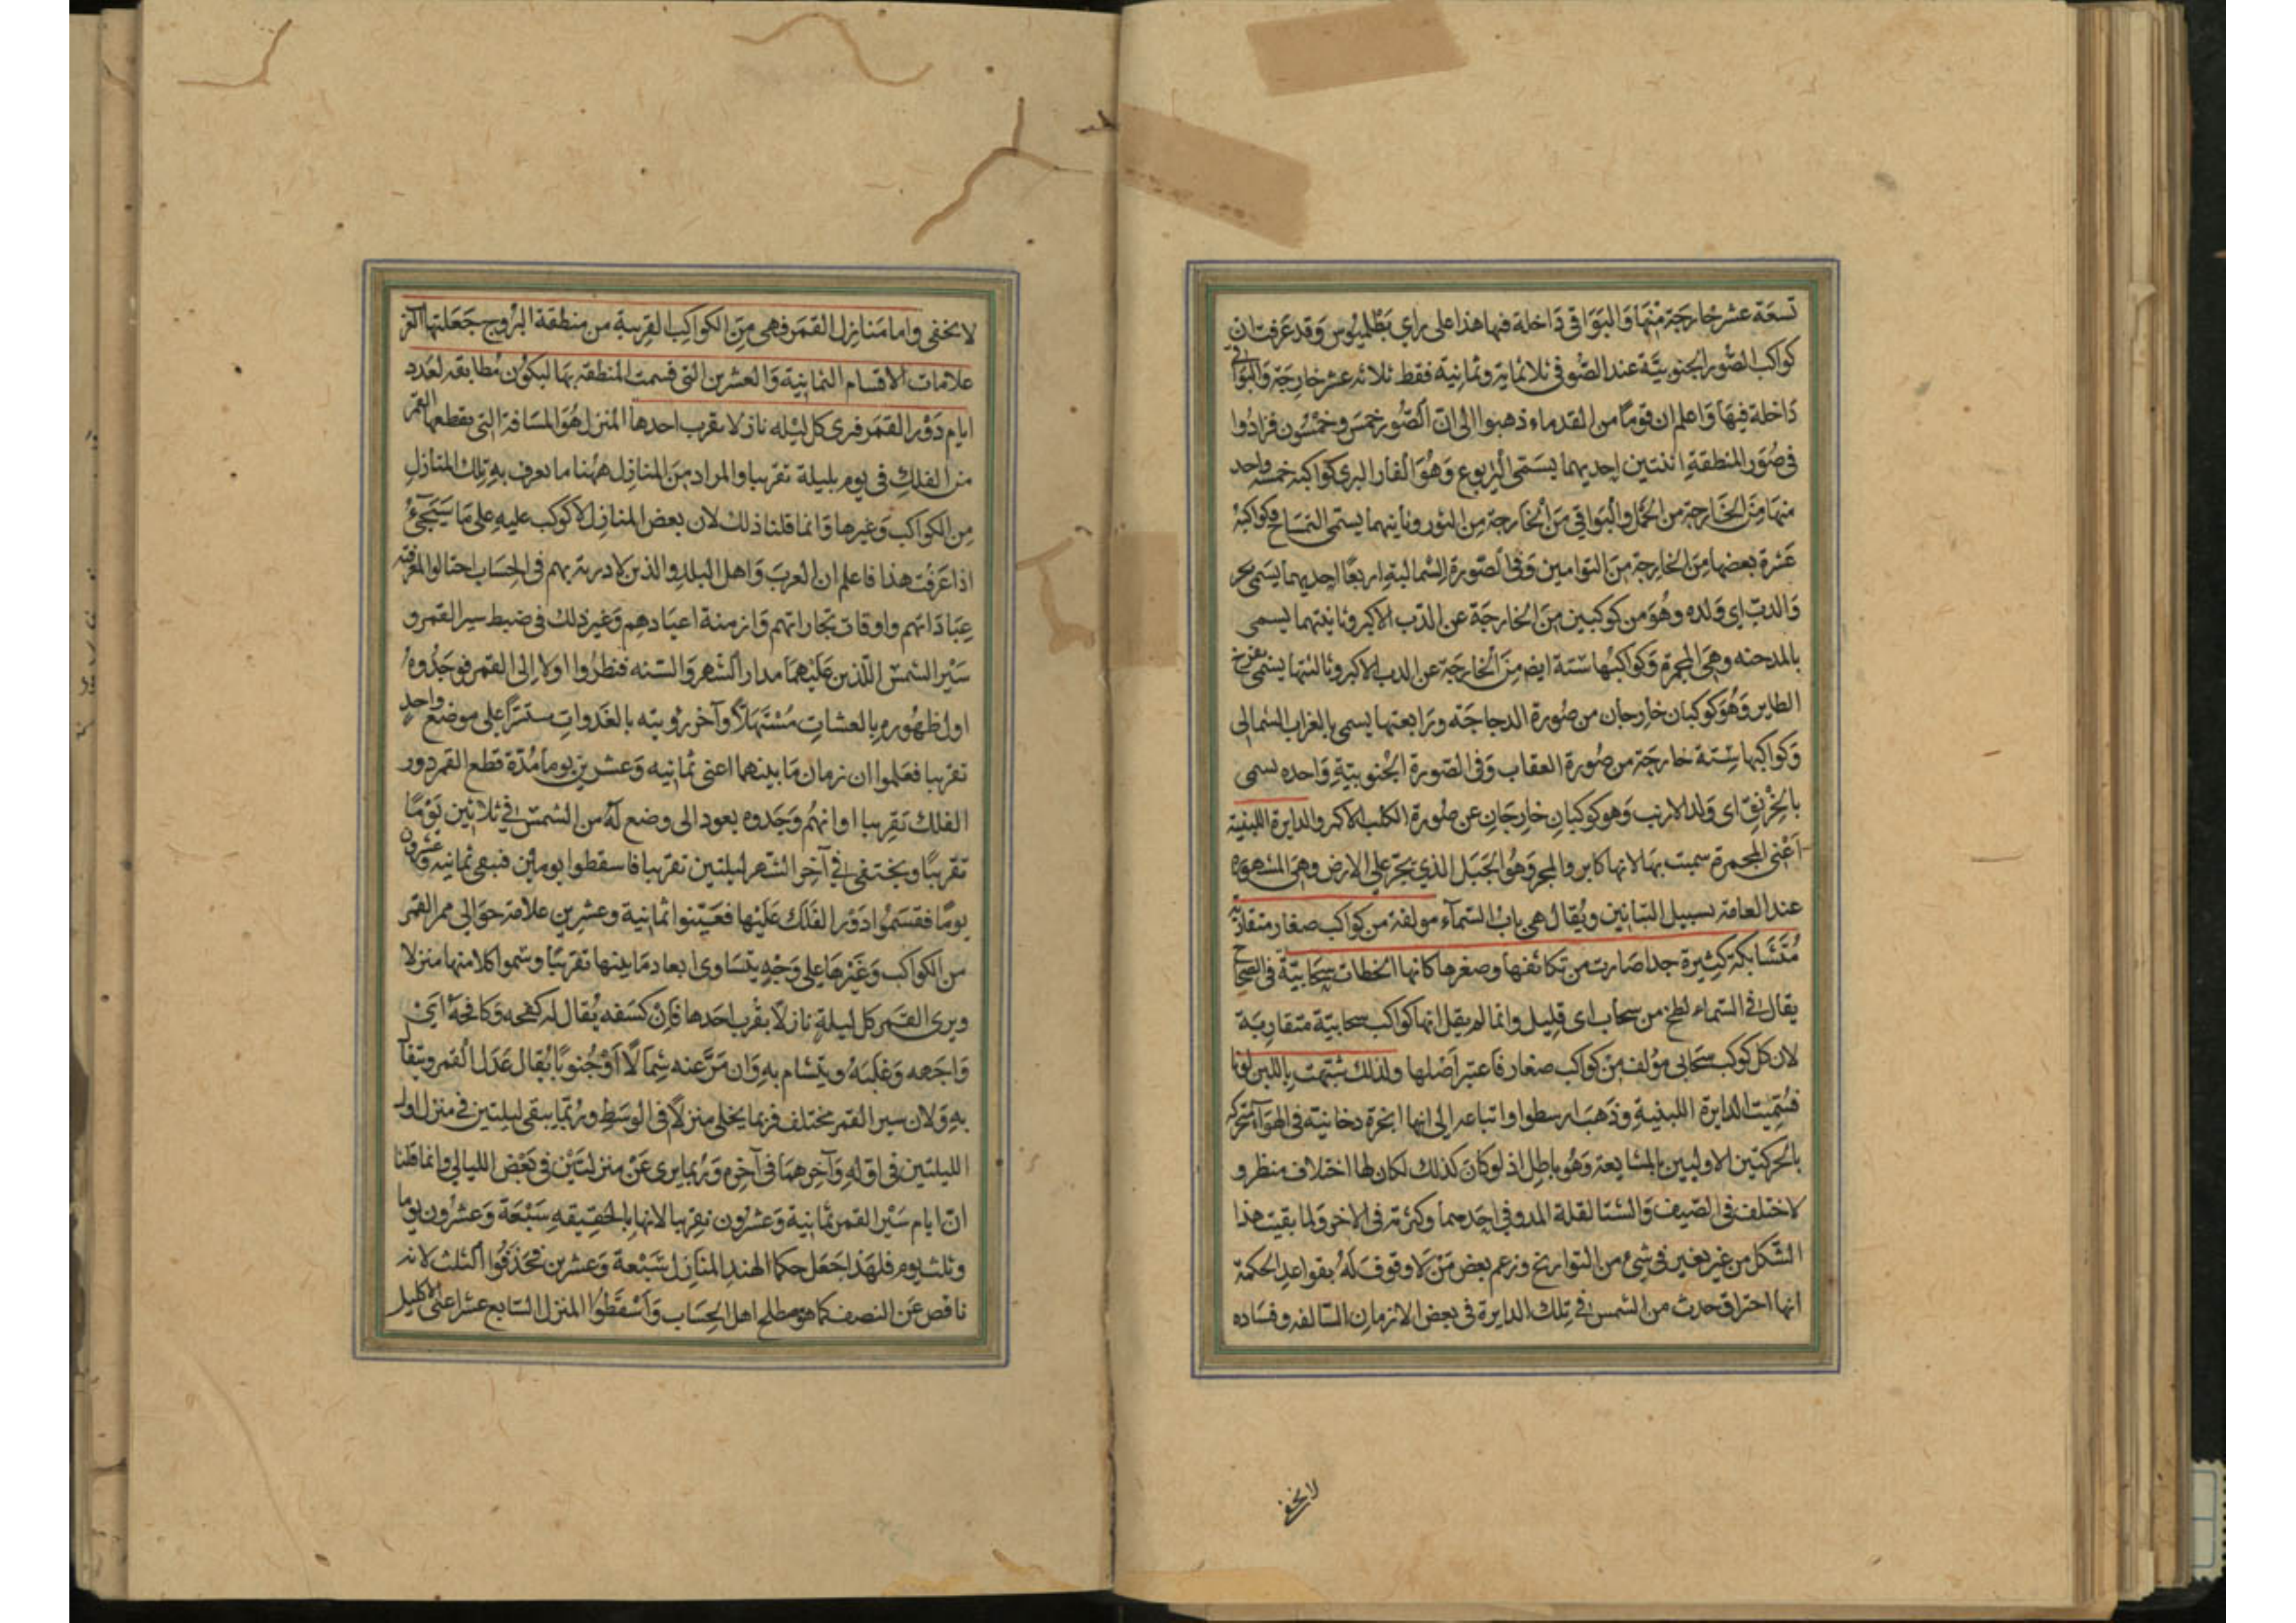 تسعة عشر خارجة منها والبواقي داخلة فيها هذا على راي بطلميوس وقد عرفت ان
كواكب الصور الجنوبية عند الصوفي ثلاثماية وثمانية فقط ثلاثه عشر خارجة والبواقي
داخلة فيها واعلم ان قوما من القدماء ذهبوا الى ان الصور خمس وخمسون فزادوا
في صور المنطقة اثنتين احديهما يسمى اليربوع وهو الفار البري كواكبه خمسه واحد
منها من الخارجة من الحمل والبواقي من الخارجة من الثور وثانيهما يسمى التمساح وكواكبه
عشرة بعضها من الخارجة من التوامين وفي الصورة الشمالية اربعا احديهما يسمى بحر
والدب اي ولده وهو من كوكبين من الخارجة عن الدب الاكبر وثانيتهما يسمى
بالمدخنه وهي المجمرة وكواكبها ستة ايض من الخارجة عن الدب الاكبر وثالثتها يسمى بفرخ
الطاير وهو كوكبان خارجان من صورة الدجاجة ورابعتها يسمى بالغراب الشمالي
وكواكبها ستة خارجة من صورة العقاب وفي الصورة الجنوبية واحده يسمى
بالخرنق اي ولد الارنب وهو كوكبان خارجان عن صورة الكلب الاكبر والدايرة اللبنية
اعني المجمرة سميت بها لانها كابر والمجر وهو الجبل الذي يجر على الارض وهي المشهورة
عند العامة بسبيل التبانين ويقال هي باب السماء مولفة من كواكب صغار متقاربة
متشابكة كثيرة جدا صارت من تكاثفها وصغرها كانها الخطات سحابية في الصحاح
يقال في السماء لطخ من سحاب اي قليل وانما لم يقل انها كواكب سحابية متقاربة
لان كل كوكب سحابي مولف من كواكب صغار فاعتبر اصلها ولذلك شبهت باللبن لونا
فسميت الدايرة اللبنية وذهب ارسطوا واتباعه الى انها ابخرة دخانية في الهواء متحركه
بالحركتين الاوليين بالمشايعة وهو باطل اذ لو كان كذلك لكان لها اختلاف منظر و
لاختلف في الصيف والشتا لقلة المدد في احدهما وكثرته في الاخر ولما بقيت هذا
الشكل من غير تغير في شئ من التواريخ وزعم بعض من لا وقوف له بقواعد الحكمة
انها احتراق حدث من الشمس في تلك الدايرة في بعض الازمان السالفه وفساده
لا يخفى
لا يخفى واما منازل القمر فهي من الكواكب القريبة من منطقة البروج جعلتها العرب
علامات الاقسام الثمانية والعشرين التي قسمت المنطقه بها ليكون مطابقه لعدد
ايام دور القمر فيرى كل ليله نازلا بقرب احدها المنزل هو المسافة التي يقطعها القمر
من الفلك في يوم بليلة تقريبا والمراد من المنازل ههنا ما يعرف به تلك المنازل
من الكواكب وغيرها وانما قلنا ذلك لان بعض المنازل لا كوكب عليه على ما سيجئ
اذا عرفت هذا فاعلم ان العرب واهل البدو الذين لا دربة بهم في الحساب احتالوا لمعرفة
عباداتهم واوقات تجاراتهم وازمنة اعيادهم وغير ذلك في ضبط سير القمر و
سير الشمس اللذين عليهما مدار الشهر والسنه فنظروا اولا الى القمر فوجدوه
اول ظهوره بالعشات مستهلا وآخر رويته بالغدوات مستترا على موضع واحد
تقريبا فعلموا ان زمان ما بينهما اعني ثمانيه وعشرين يوما مدة قطع القمر دور
الفلك تقريبا او انهم وجدوه يعود الى وضع له من الشمس في ثلاثين يوما
تقريبا ويختفي في آخر الشهر ليلتين تقريبا فاسقطوا يومين فبقي ثمانيه وعشرون
يوما فقسموا دور الفلك عليها فعينوا ثمانية وعشرين علامة حوالي ممر القمر
من الكواكب وغيرها على وجه يتساوى ابعاد ما بينها تقريبا وسموا كلا منها منزلا
ويرى القمر كل ليلة نازلا بقرب احدها فان كسفه يقال له كفحه وكافحة اي
واجهه وغلبه ويتشام به وان مر عنه شمالا او جنوبا يقال عدل القمر ويتفال
به ولان سير القمر مختلف فربما يخلى منزلا في الوسط وربما يبقى ليلتين في منزل اول
الليلتين في اوله وآخرهما في آخره وربما يرى عن منزلتين في بعض الليالي وانما قلنا
ان ايام سير القمر ثمانية وعشرون تقريبا لانها بالحقيقه سبعة وعشرون يوما
وثلث يوم فلهذا جعل حكما الهند المنازل سبعة وعشرين فحذفوا الثلث لانه
ناقص عن النصف كما هو مطلح اهل الحساب واسقطوا المنزل السابع عشر اعني الاكليل